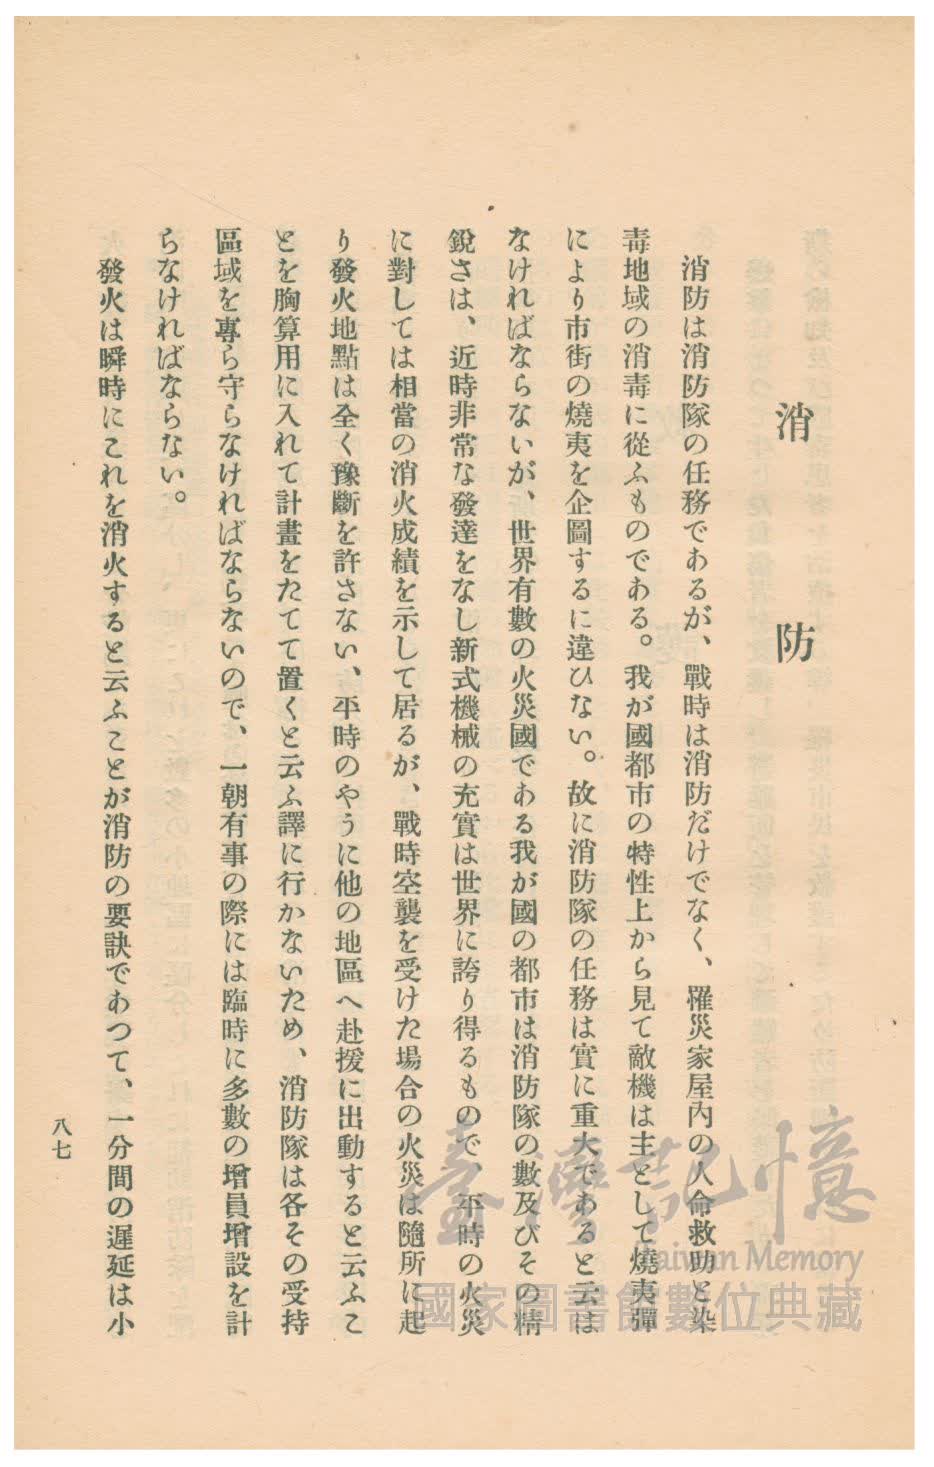 消防
消防は消防隊の任務であるが、戰時は消防だけでなく、罹災家屋內の人命救助と染
毒地域の消毒に從ふものである。我が國都市の特性上から見て敵機は主として燒夷彈
により市街の燒夷を企圖するに違ひない。故に消防隊の任務は實に重大であると云は
なければならないが、世界有數の火災國である我が國の都市は消防隊の數及びその精
銳さは、近時非常な發達をなし新式機械の充實は世界に誇り得るもので、平時の火災
に對しては相當の消火成績を示して居るが、戰時空襲を受けた場合の火災は隨所に起
り發火地點は全く豫斷を許さない、平時のやうに他の地區へ赴援に出動すると云ふこ
とを胸算用に入れて計畫をたてて置くと云ふ譯に行かないため、消防隊は各その受持
區域を專ら守らなければならないので、一朝有事の際には臨時に多數の增員增設を計
らなければならない。
發火は瞬時にこれを消火すると云ふことが消防の要訣であつて、一分間の遲延は小
八七
臺灣記憶
Taiwan Memory
國家圖書館數位典藏